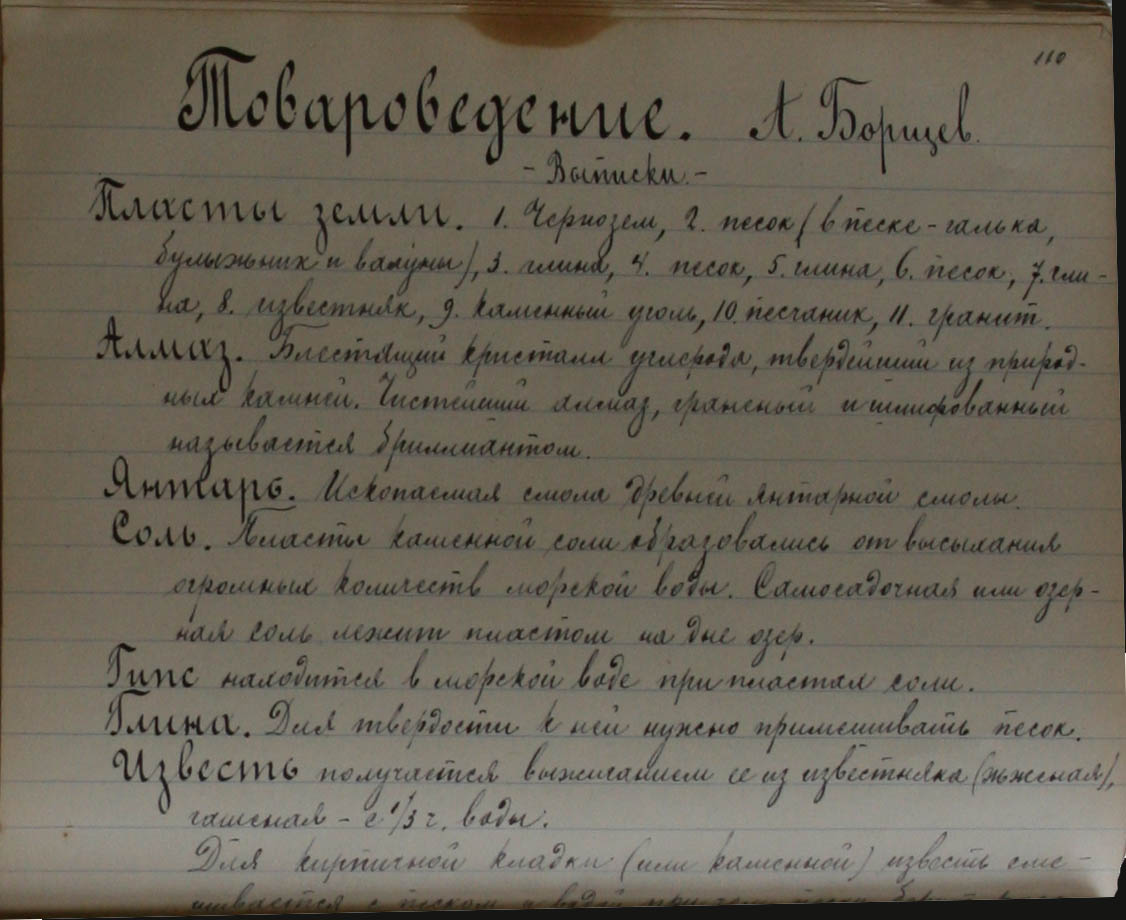 110
Товароведение. А. Борщев.
- Выписки. -
Пласты земли. 1. Чернозем, 2. песок (в песке - галька,
булыжник и валуны), 3. глина, 4. песок, 5. глина, 6. песок, 7. гли-
на, 8. известняк, 9. каменный уголь, 10. песчаник, 11. гранит.
Алмаз. Блестящий кристалл углерода, твердейший из природ-
ных камней. Чистейший алмаз, граненый и шлифованный
называется бриллиантом.
Янтарь. Ископаемая смола древней янтарной смолы.
Соль. Пласты каменной соли образовались от высыхания
огромных количеств морской воды. Самосадочная или озер-
ная соль лежит пластом на дне озер.
Гипс находится в морской воде при пластах соли.
Глина. Для твердости к ней нужно примешивать песок.
Известь получается выжиганием ее из известняка (жженая),
гашеная - с 1/3 ч. воды.
Для кирпичной кладки (или каменной) известь сме-
шивается с песком и водой